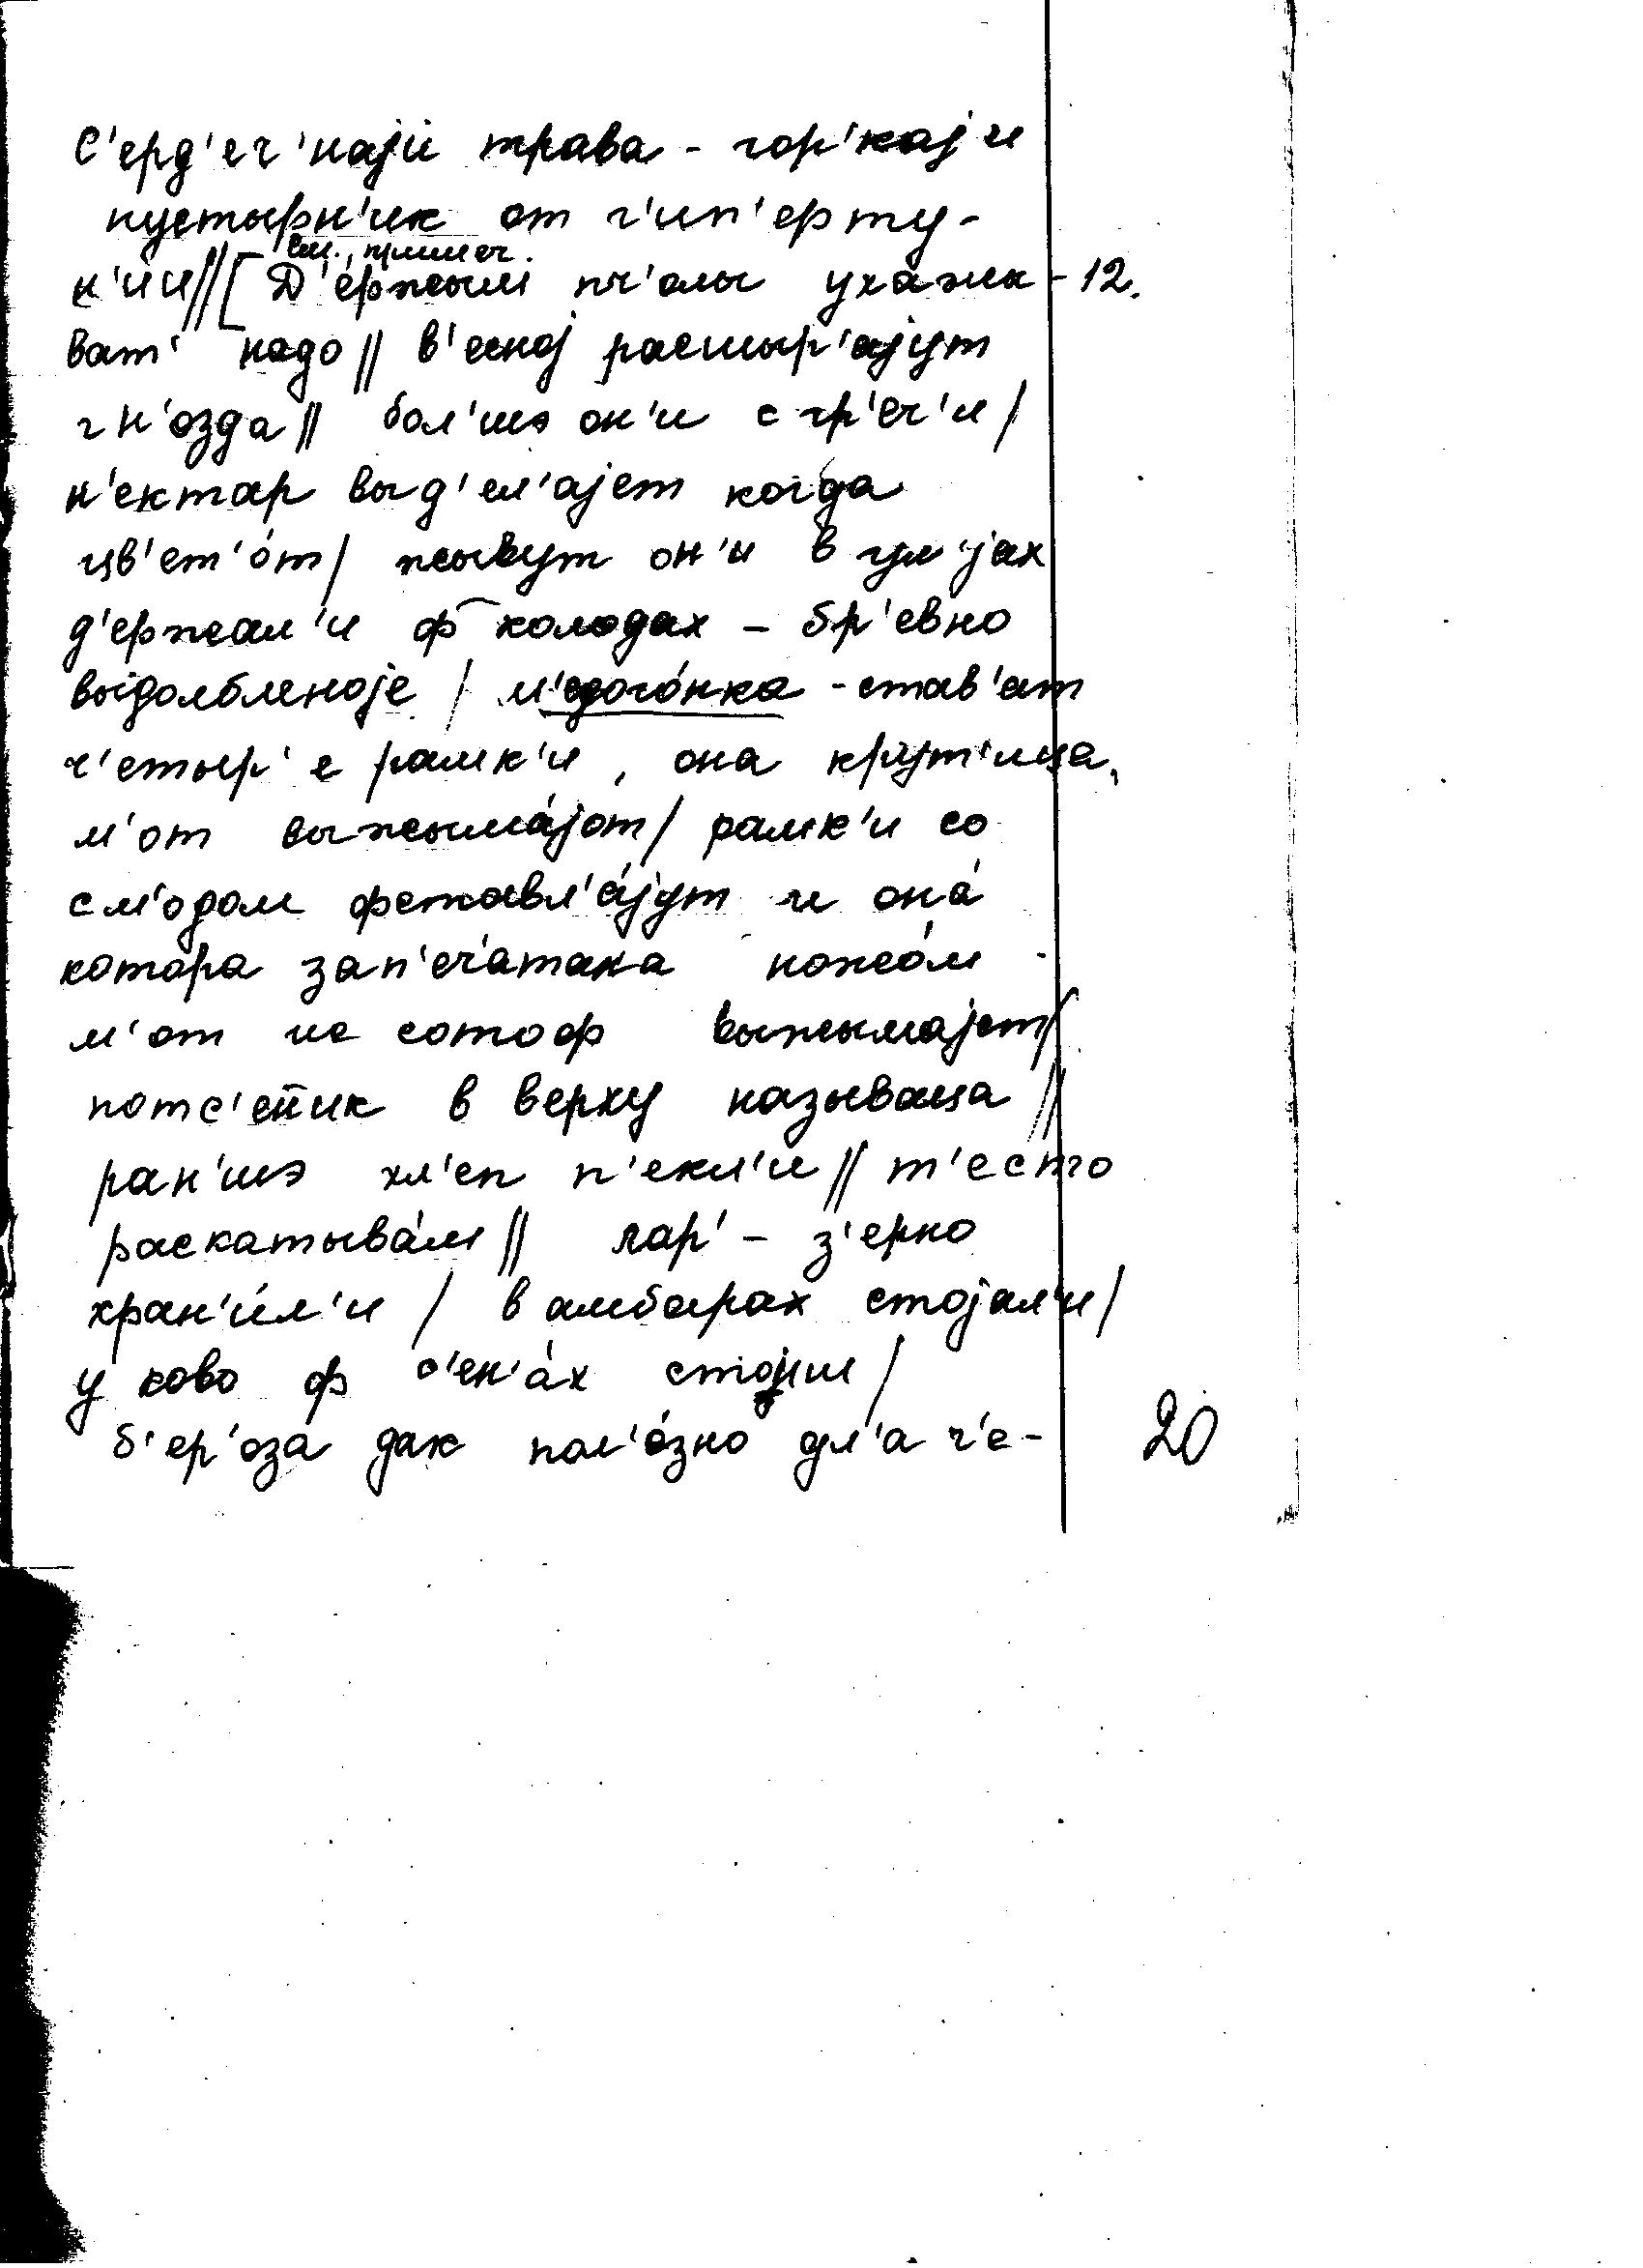 С'ерд'еч'најь трава - гор'кај и
пустырн'ик от г'ип'ерту-
н'ии// [ Д'ержым пч'олы ухажи- 12.
см. примеч.
ват' надо// в'есној расшыр'ајут
гн'озда// бол'шэ он'и с гр'еч'и/
н'ектар выд'ел'ајет когда
цв'ет'о́т/ жывут он'и в ул'јах
д'ержал'и ф колодах - бр'евно
вы́долбленоје / м'едого́нка - став'ат
ч'етыр'е рамк'и, она крут'ица,
м'от выжыма́јот/ рамк'и со
см'одом фставл'а́јут и она́
кото́ра зап'еч'атана ножо́м
м'от из сотоф выжымајет/
потс'ет'ик в верху называца//
ран'шэ хл'еп п'екл'и// т'есто
раскатыва́ли// лар' - з'ерно
хран'и́л'и / в амбарах стојал'и/
у ково ф с'ен'а́х стојал/
б'ер'оза́ дак пол'о́зно дл'а ч'е-
20